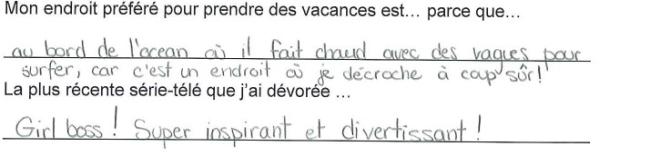 Mon endroit préféré pour prendre des vacances est... parce que...
au bord de l'océan où il fait chaud avec des vagues pour
surfer, car c'est un endroit où je décroche à coup sûr!
La plus récente série-télé que j'ai dévorée ...
Girl boss! Super inspirant et divertissant!